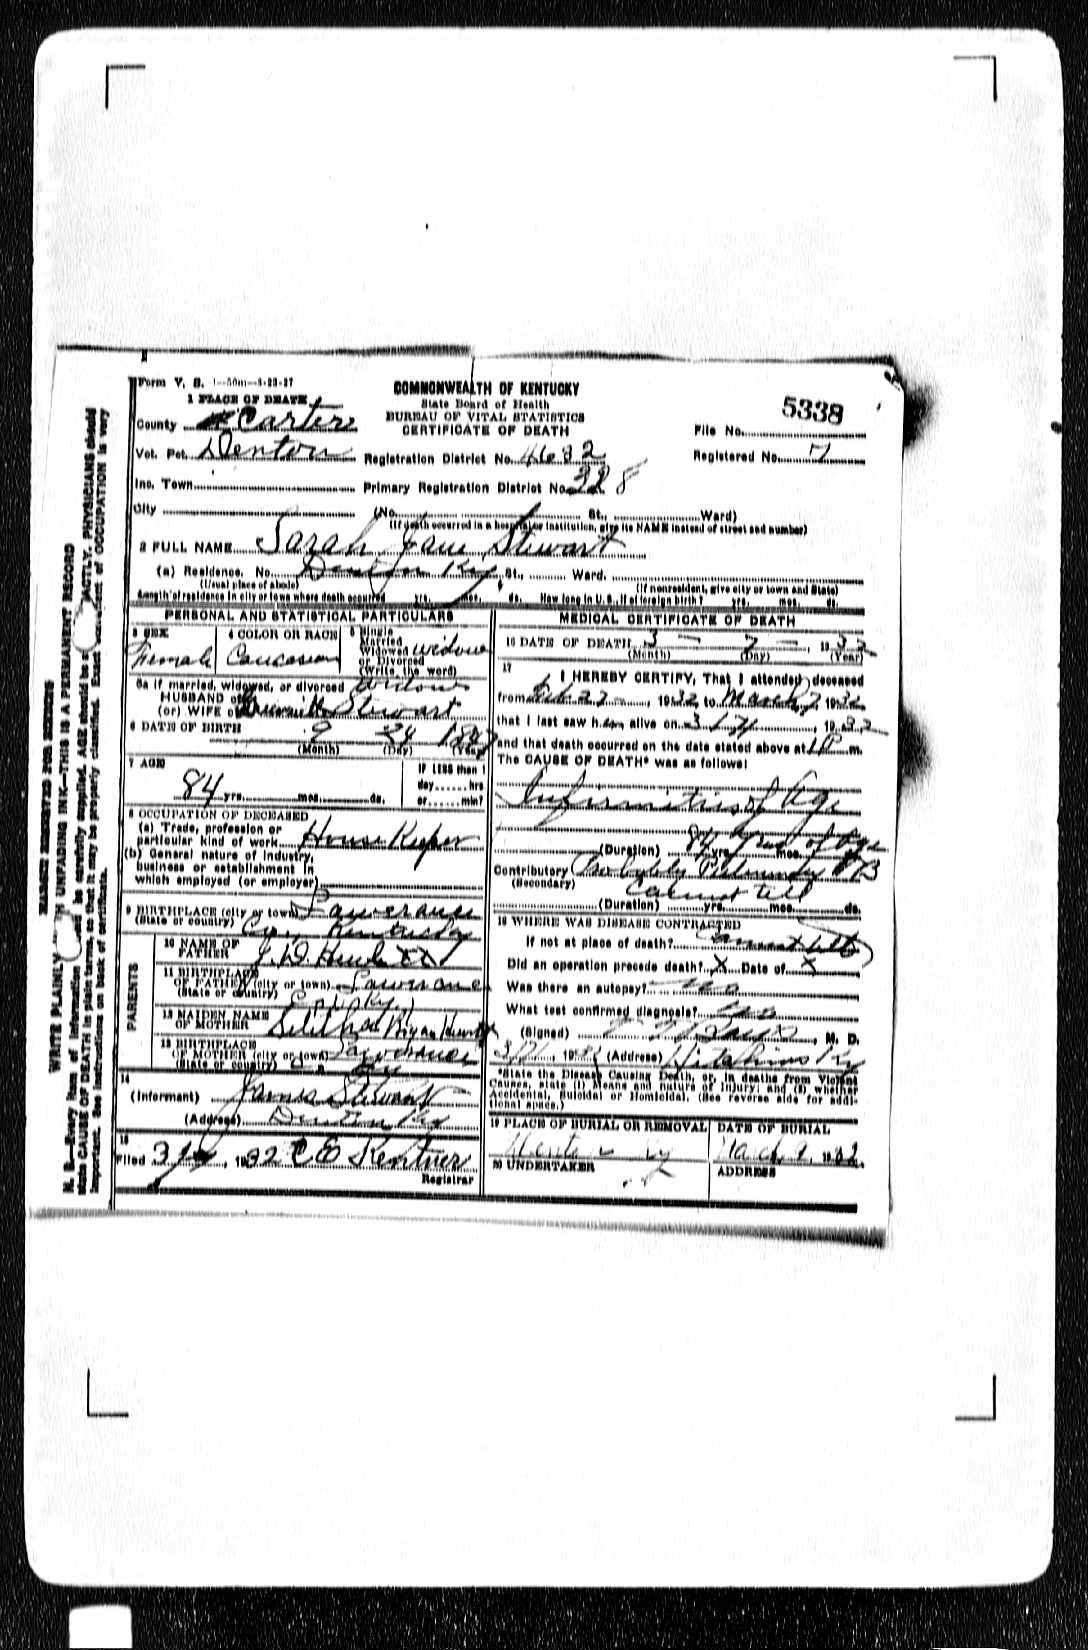 Form V. S. 1—50m—3-23-27
COMMONWEALTH OF KENTUCKY
State Board of Health
BUREAU OF VITAL STATISTICS
CERTIFICATE OF DEATH
5338
1 PLACE OF DEATH
County Carter
File No.
Vot. Pct. Denton
Registration District No. 4632
Registered No. 7
Ins. Town
Primary Registration District No. 328
City
(No. St., Ward)
(If death occurred in a hospital or institution, give its NAME instead of street and number)
2 FULL NAME Sarah Jane Stewart
(a) Residence. No. Denton Ky St., Ward.
(Usual place of abode) (If nonresident, give city or town and State)
Length of residence in city or town where death occurred yrs. mos. ds. How long in U. S., if of foreign birth? yrs. mos. ds.
PERSONAL AND STATISTICAL PARTICULARS
3 SEX Female
4 COLOR OR RACE Caucasian
5 Single Married Widowed or Divorced (Write the word) widow
5a If married, widowed, or divorced Widow
HUSBAND of
(or) WIFE of Stewart
6 DATE OF BIRTH 9 24 1847
(Month) (Day) (Year)
7 AGE
84 yrs. mos. ds.
If LESS than 1
day hrs
or min?
8 OCCUPATION OF DECEASED
(a) Trade, profession or
particular kind of work House Keeper
(b) General nature of industry,
business or establishment in
which employed (or employer)
9 BIRTHPLACE (city or town) Lawerance
(State or country) Co., Kentucky
PARENTS
10 NAME OF
FATHER J. D.
11 BIRTHPLACE
OF FATHER (city or town) Lawerance
(State or country) Co., Ky.
12 MAIDEN NAME
OF MOTHER
13 BIRTHPLACE
OF MOTHER (city or town) Lawerance
(State or country) Co., Ky
14
(Informant) James Stewart
(Address) Denton Ky
15
Filed 3 1932 C E Kentner
Registrar
MEDICAL CERTIFICATE OF DEATH
16 DATE OF DEATH 3 — 7 — , 1932
(Month) (Day) (Year)
17
I HEREBY CERTIFY, That I attended deceased
from Feb 27 , 1932 to March 7, 1932
that I last saw h er alive on 3 , 1932
and that death occurred on the date stated above at m.
The CAUSE OF DEATH* was as follows:
Infirmities of Age
(Duration) 84 yrs. mos. of Age
Contributory Probably TB
(Secondary) Cannot tell
(Duration) yrs. mos. ds.
18 WHERE WAS DISEASE CONTRACTED
If not at place of death? Cannot tell
Did an operation precede death? X Date of X
Was there an autopsy? no
What test confirmed diagnosis? no
(Signed) , M. D.
, 1932 (Address) Hitchins Ky
*State the Disease Causing Death, or, in deaths from Violent
Causes, state (1) Means and nature of Injury; and (2) whether
Accidental, Suicidal or Homicidal. (See reverse side for addi-
tional space.)
19 PLACE OF BURIAL OR REMOVAL
DATE OF BURIAL
Denton Ky
March 9 1932
20 UNDERTAKER
ADDRESS
MARGIN RESERVED FOR BINDING
WRITE PLAINLY UNFADING INK—THIS IS A PERMANENT RECORD
N. B.—Every item of information be carefully supplied. AGE should be EXACTLY. PHYSICIANS should
state CAUSE OF DEATH in plain terms, so that it may be properly classified. Exact of OCCUPATION is very
important. See instructions on back of certificate.